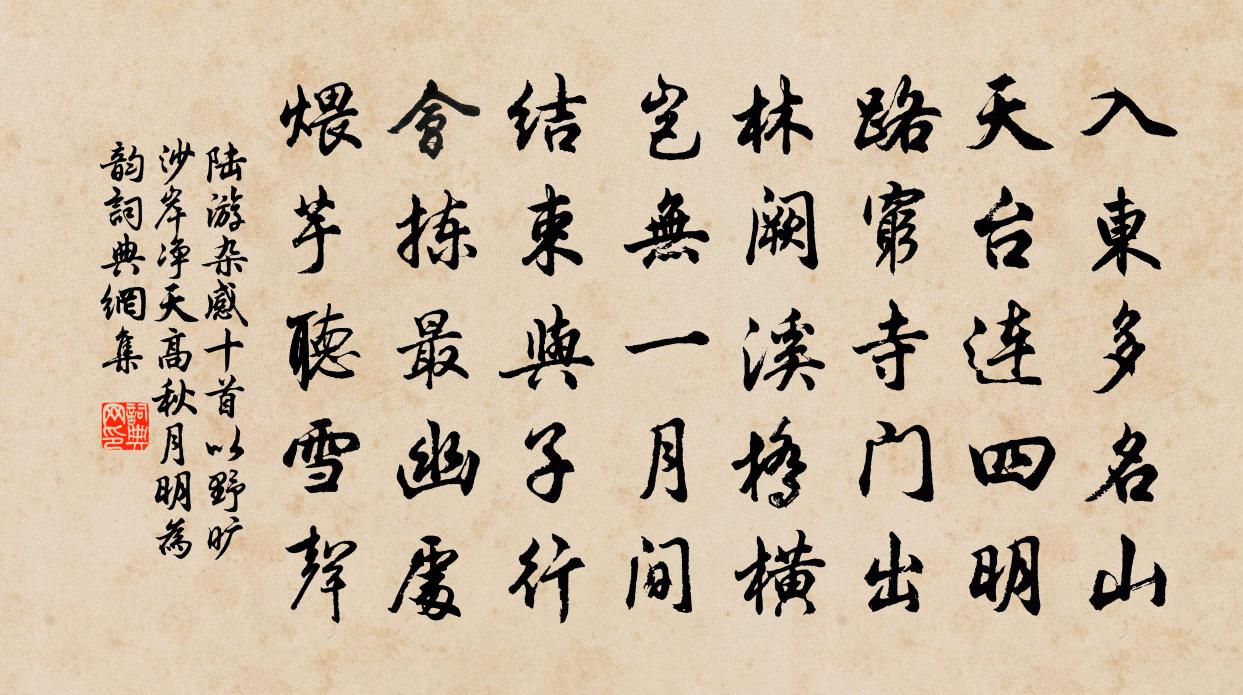 入東多名山
天台连四明
路窮寺门出
林阙溪橋橫
岂無一月间
结束與子行
會揀最幽處
煨芋聽雪聲
陆游杂感十首以野旷
沙岸净天高秋月明為
韵詞典網集
詞典
网印